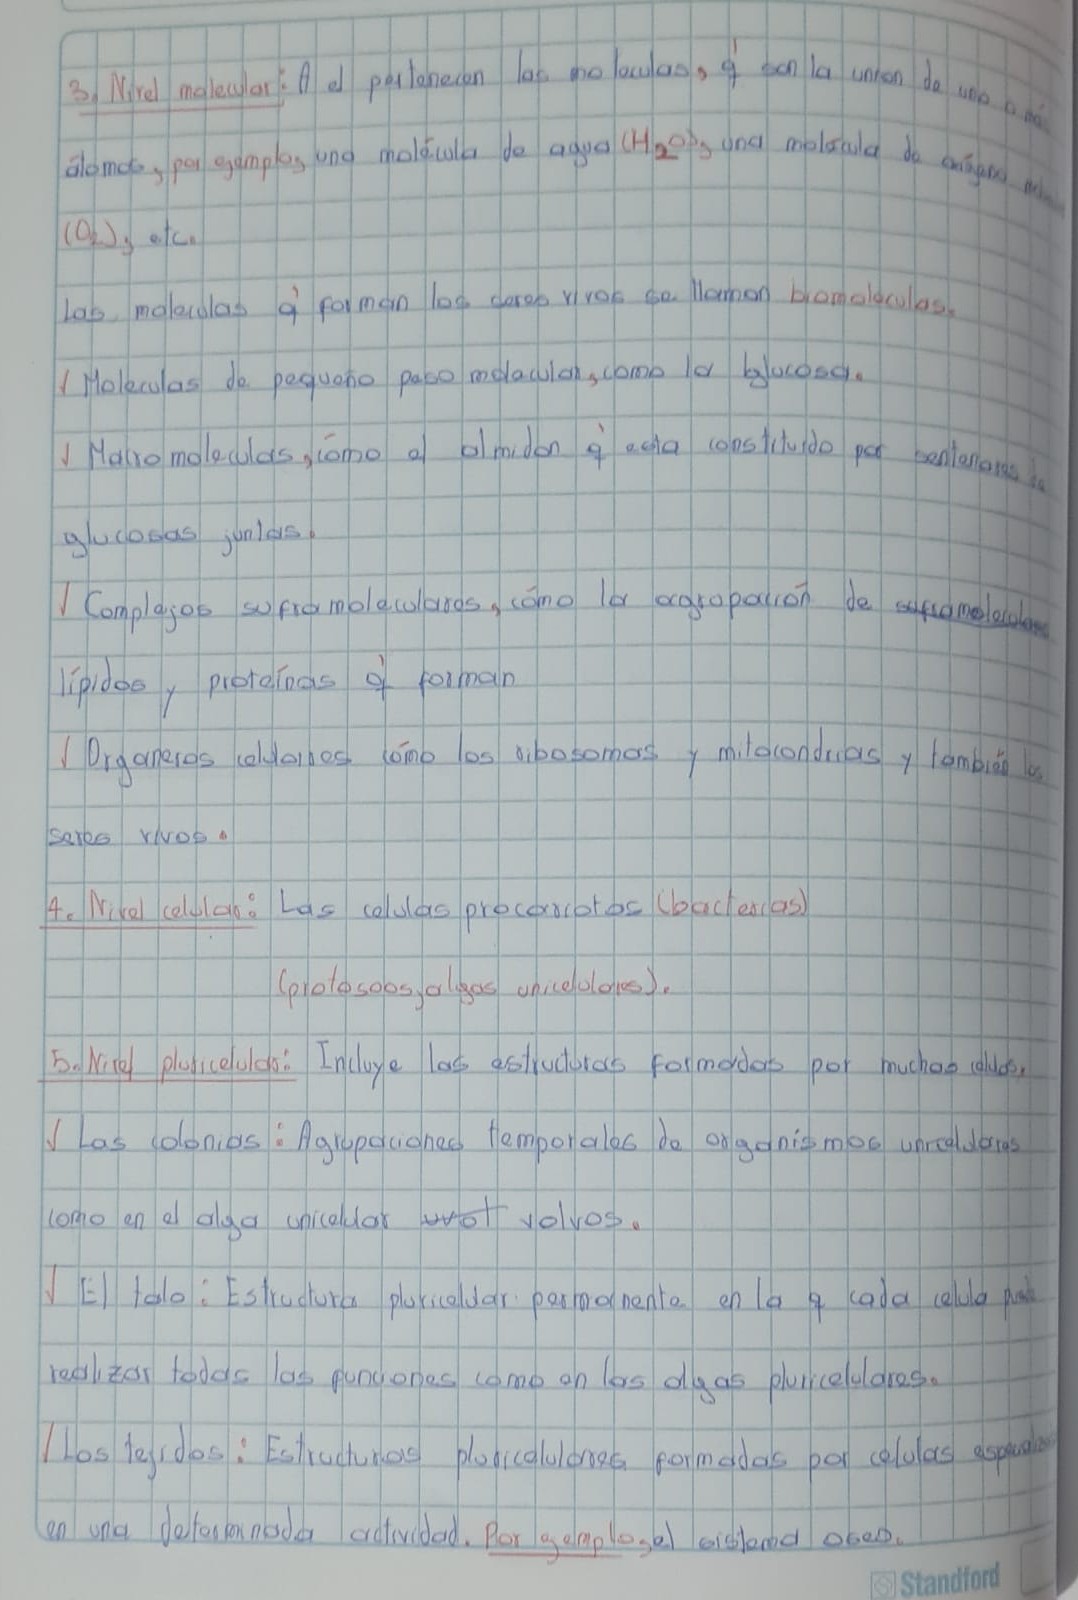 3. Nivel molecular: A el pertenecen las moleculas, q' son la union de uno o más
átomos, por ejemplo, una molécula de agua (H2O), una molécula de oxígeno
(O2), etc.
Las moleculas q' forman los seres vivos se llaman biomoleculas.
√ Moleculas de pequeño peso molecular, como la glucosa.
√ Macromoleculas, cómo el almidon q' esta constituido por centenares de
glucosas juntas.
√ Complejos supramoleculares, cómo la agrupación de supramoleculares
lípidos y proteínas q' forman
√ Organeros celulares cómo los ribosomas y mitocondrias y también los
seres vivos.
4. Nivel celular: Las celulas procariotas (bacterias)
(protosoos, algas unicelulares).
5. Nivel pluricelular: Incluye las estructuras formadas por muchas celulas.
√ Las colonias: Agrupaciones temporales de organismos unicelulares
como en el alga unicelular volvos.
√ El talo: Estructura pluricelular permanente en la q cada celula puede
realizar todas las funciones como en las algas pluricelulares.
√ Los tejidos: Estructuras pluricelulares formadas por celulas especializadas
en una determinada actividad. Por ejemplo, el sistema oseo.
Standford